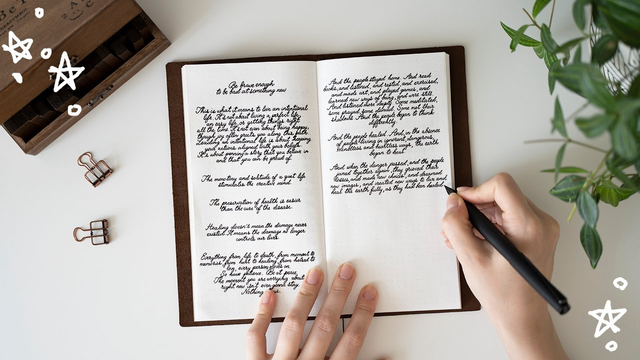 Be brave enough
to be bad at something new
This is what it means to live an intentional
life. It's not about living a perfect life,
an easy life, or getting things right
all the time. It's not even about being happy,
though joy often greets you along the path.
Leading an intentional life is about keeping
It's about owning a story that you believe in
and that you can be proud of.
The monotony and solitude of a quiet life
stimulates the creative mind.
The preservation of health is easier
than the cure of the disease.
Healing doesn't mean the damage never
existed. It means the damage no longer
controls our lives.
Everything from life to death, from moment to
memories, from hurt to healing, from hatred to
love, every person goes on
So have patience. Be at peace.
The moment you are worrying about
right now isn't ever gonna stay.
And the people stayed home. And read
books, and listened, and rested, and exercised,
and made art, and played games, and
learned new ways of being, and were still.
And listened more deeply. Some meditated,
some prayed, some danced. Some met their
shadows. And the people began to think
differently.
And the people healed. And, in the absence
of people living in ignorant, dangerous,
mindless and heartless ways, the earth
began to heal.
And when the danger passed, and the people
joined together again, they grieved their
losses, and made new choices, and dreamed
new images, and created new ways to live and
heal the earth fully, as they had been healed